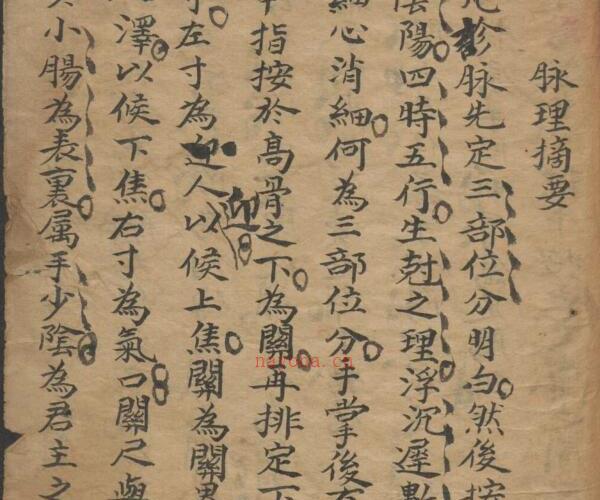 脉理摘要
診脉先定三部位分明白然後按
陰陽四時五行生尅之理浮沉遲數
細心消細何為三部位分于掌後有
指按於髙骨之下為關再排定下
左寸為迎人以候上焦關為關界
澤以候下焦右寸為氣口關尺與
小腸為表裏属手少陰為君主之
迎
naroba.cn